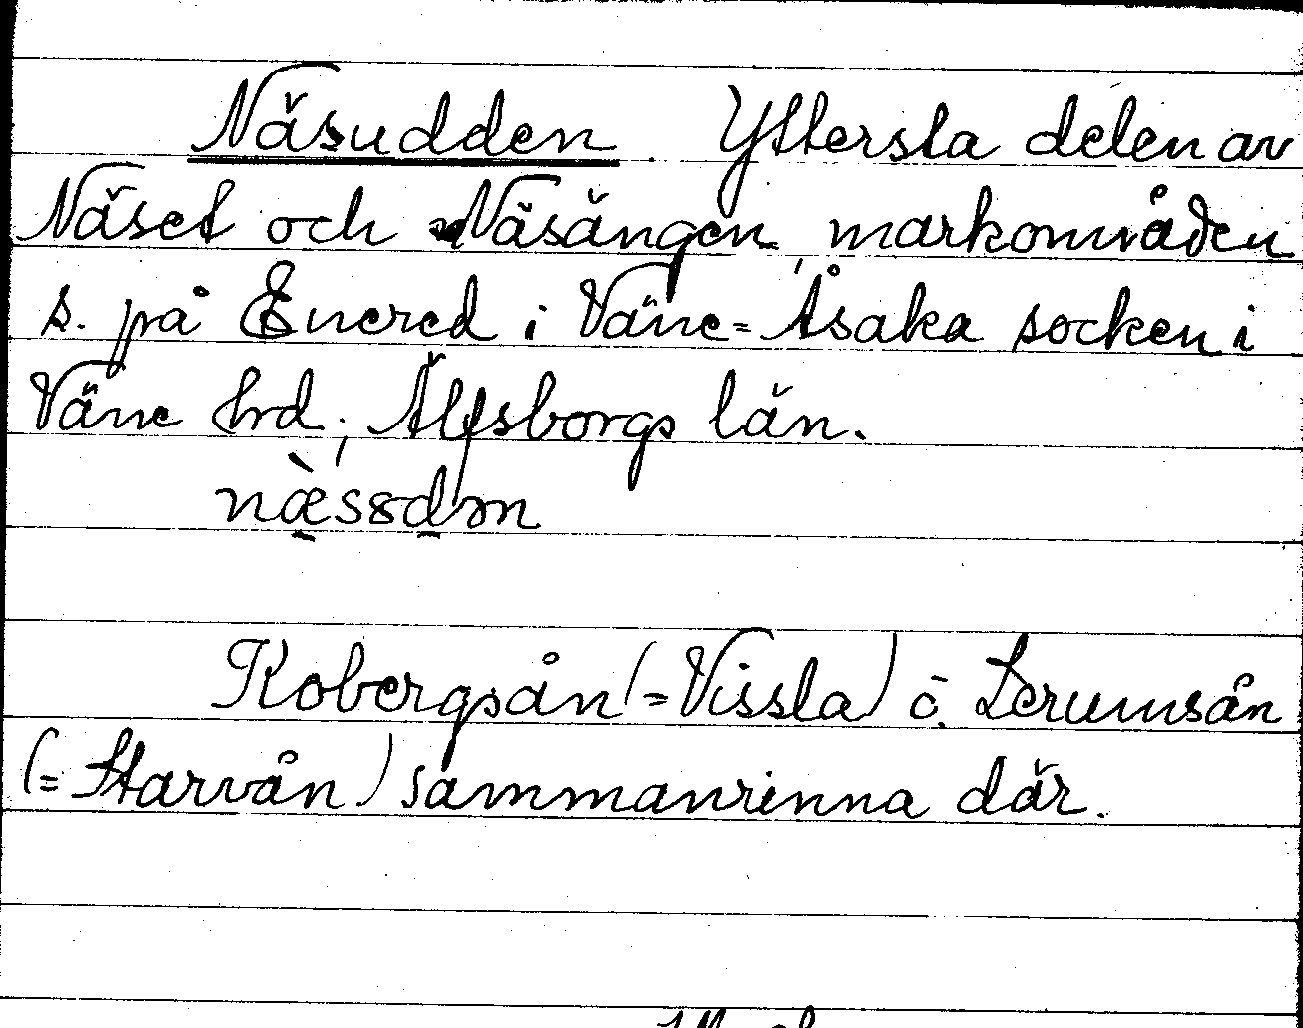 Näsudden. Yttersta delen av
Näset och Näsängen, markområden
s. på Enered i Väne-Åsaka socken i
Väne hrd, Älfsborgs län.
næ̀ssdṃn
Kobergsån (=Vissla) o. Lerumsån
(=Starvån) sammanrinna där.